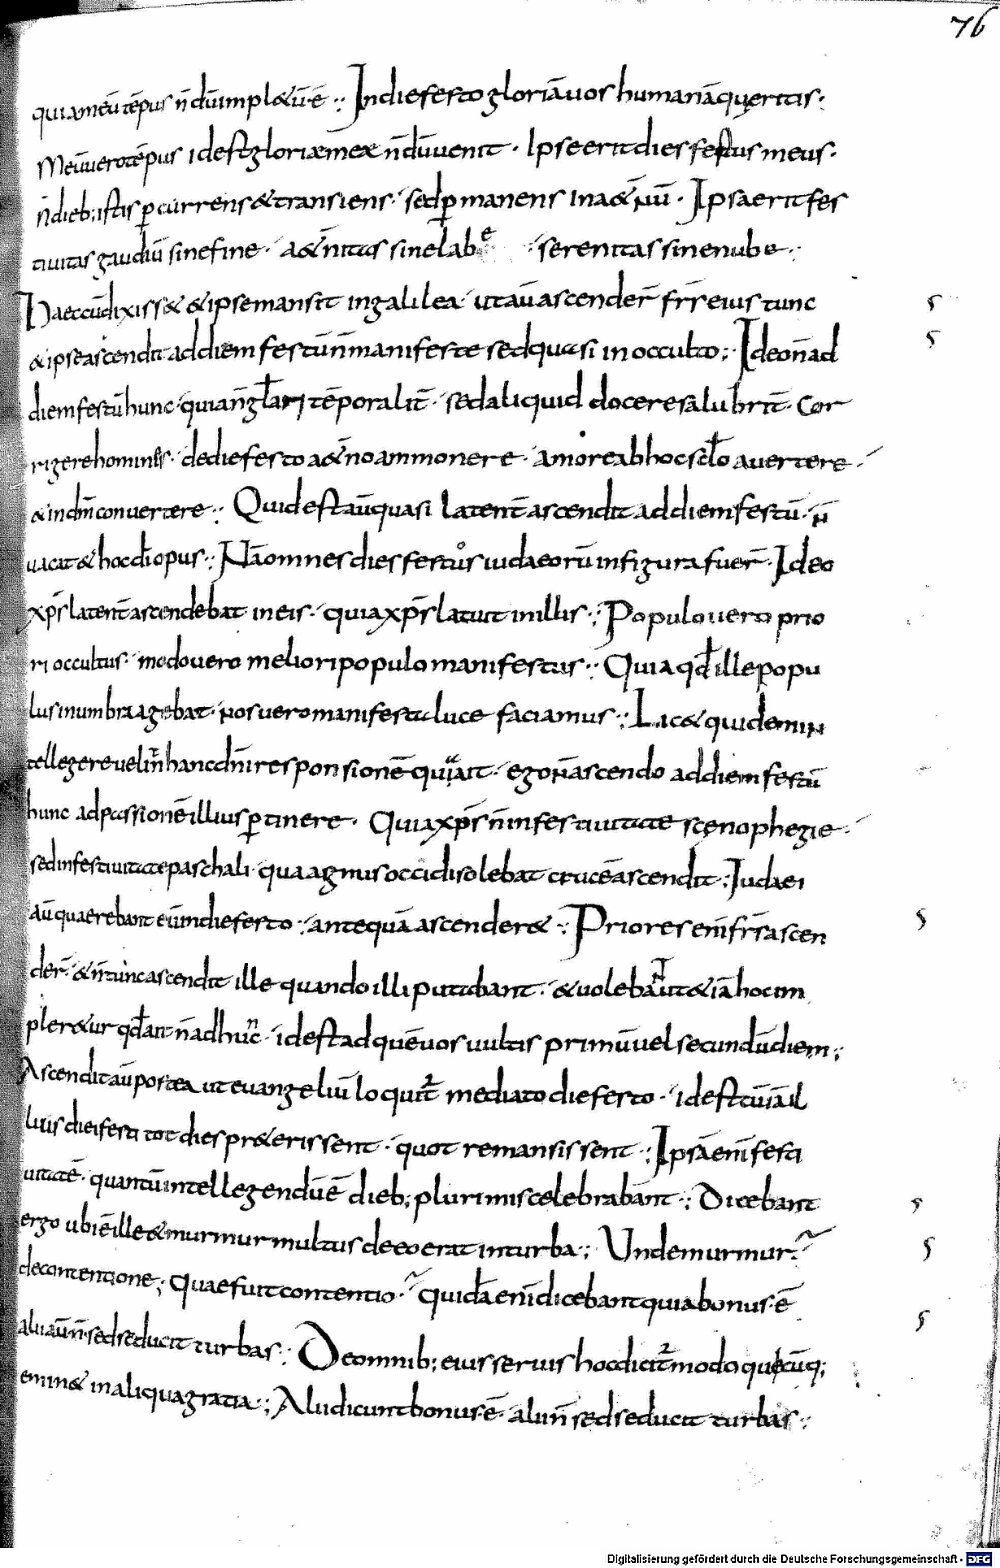 76
quia meū tēpus n̄ dū impl& ū ē ·:· In die festo gloriā uos humanā queritis·
Meū uero tēpus id est gloriae meae n̄ dū uenit · Ipse erit dies festus meus·
n̄ dieb; istis p currens & transiens · sed p manens in a&nū · Ipsa erit fes
tiuitas gaudiū sine fine · a&n̄itas sine labe serenitas sine nube ·:·
Haec cū dixiss& & ipse mansit in galilea · ut aū ascender̄ frr̄ eius tunc
& ipse ascendit ad diem festū n̄ manifeste sed quasi in occulto ; Ideo n̄ ad
diem festū hunc · quia n̄ gl̄ari tēporalit̄ · sed aliquid docere salubrit̄ · Cor
rigere homines · de die festo a&n̄o ammonere · amore ab hoc sc̄lo auertere ·
& in dm̄ conuertere ·:· Quid est aū quasi latent̄ ascendit ad diem festū · N̄
uacat & hoc dīo opus ·:· Nā omnes dies festos iudaeorū in figura fuer̄ · Ideo
xp̄s latent̄ ascendebat in eis · quia xp̄s latuit in illis ·:· Populo uero prio
ri occultus · modo uero meliori populo manifestus ·:· Quia qd̄ ille popu
lus in umbra agebat · nos uero manifesta luce faciamus ·:· Lic& quidem in
tellegere uelint hanc dn̄i responsionē qua ait · ego n̄ ascendo ad diem festū
hunc ad passionē illius p tinere · Quia xp̄s n̄ in festiuitate scenophegie ·
sed in festiuitate paschali · qua agnus occidi solebat crucē ascendit ·: Iudaei
aū quaerebant eū in die festo · antequā ascender& ·:· Priores enī frs̄ ascen
der̄ · & n̄ tunc ascendit ille quando illi putabant · & uolebant ut & iā hoc im
pler&ur qd̄ ait n̄ ad hunc · id est ad quē uos uultis primū uel secundū diem ;
Ascendit aū postea ut euangeliū loquit mediato die festo · id est cū iā il
lius diei festi tot dies pr&erissent · quot remansissent ·: Ipsā enī festi
uitatē · quantū intellegendū ē dieb; plurimis celebrabant ·:· Dicebant
ergo ubi ē ille & murmur multus de eo erat in turba ; Unde murmur ·
de contentione ; Quae fuit contentio · quidā enī dicebant quia bonus ē
alii aū n̄ sed seducit turbas ·:· De omnib; eius seruis hoc dicit modo quicūq;
emin& in aliqua gratia ·:· Alii dicunt bonus ē · alii n̄ sed seducit turbas ·:·
Digitalisierung gefördert durch die Deutsche Forschungsgemeinschaft - DFG